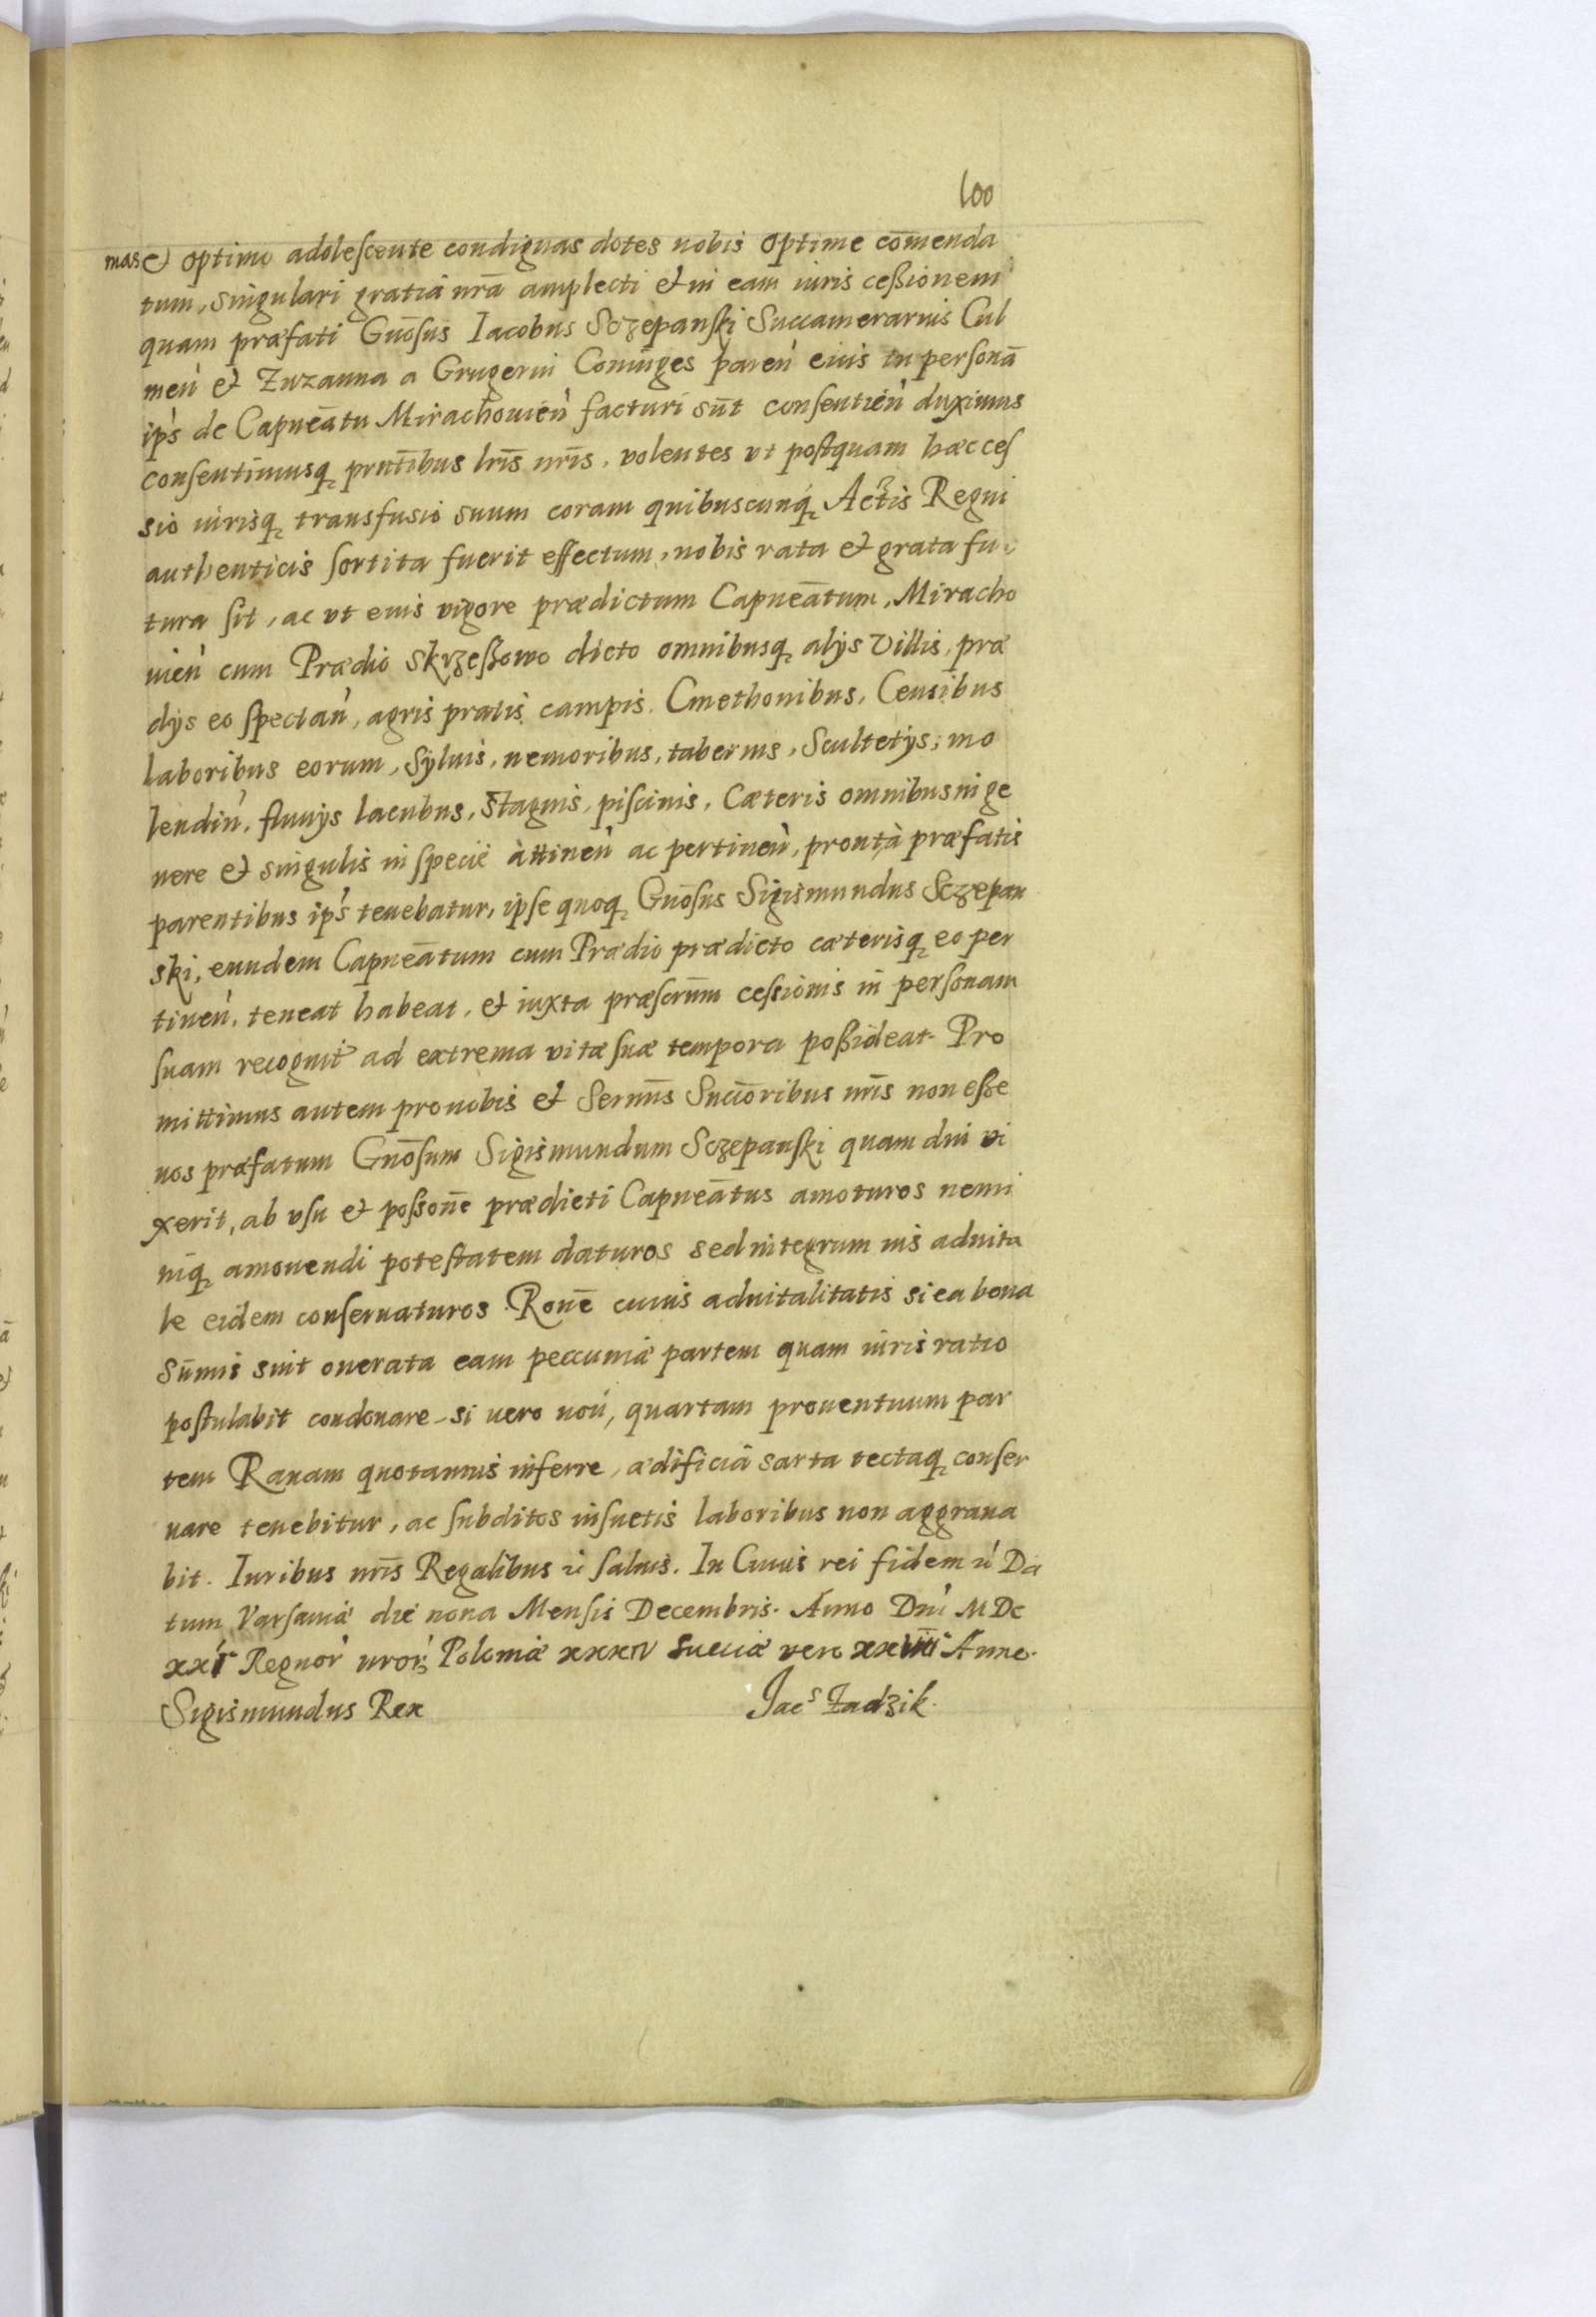 100
mas et optimo adolescente condignas dotes nobis optime com̄enda
tum, singulari gratia nr̄a amplecti et in eam iuris cessionem
quam præfati Gnōsus Iacobus Sczepanski Succamerarius Cul
meń et Zuzanna a Grugerin Coniūges pareń eius in personā
ips de Capneātu Mirachouień facturi sūt consentień duximus
consentimusq, prntībus lrīs nrīs, volentes vt postquam hæc ces
sio iurisq, transfusio suum coram quibuscunq, Actis Regni
authenticis sortita fuerit effectum, nobis rata et grata fu
tura sit, ac vt euis vigore prædictum Capneātum, Miracho
uień cum Prædio Skrzeszowo dicto omnibusq, alijs Villis, præ
dijs eo spectań, agris pratis campis, Cmethonibus, Censibus
laboribus eorum, Syluis, nemoribus, tabernis, Scultetijs, mo
lendiń, fluuijs lacubus, stagnis, piscinis, Cæteris omnibus in ge
nere et singulis in specie attineń ac pertineń, prout à præfatis
parentibus ips tenebatur, ipse quoq, Gnōsus Sigismundus Sczepan
ski, eundem Capneātum cum Prædio prædicto cæterisq, eo per
tineń, teneat habeat, et iuxta præscrtūm cessionis in personam
suam recognit ad extrema vitæ suæ tempora possideat. Pro
mittimus autem pro nobis et Sernūs Succōribus nrīs non esse
nos præfatum Gnōsum Sigismundum Sczepanski quam diu vi
xerit, ab vsu et possonē prædicti Capneātus amoturos nemi
niq, amouendi potestatem daturos sed integrum ius aduita
le eidem conseruaturos. Ronē cuius aduitalitatis si ea bona
sūmis sint onerata eam peccuniæ partem quam iuris ratio
postulabit condonare, si vero noń, quartam prouentuum par
tem Rauam quotannis inferre, ædificia sarta tectaq, conser
uare tenebitur, ac subditos insuetis laboribus non aggraua
bit. Iuribus nrīs Regalibus ꝛć saluis. In Cuius rei fidem ꝛć Da
tum Varsauiæ die nona Mensis Decembris. Anno Dnī MDC
xxi Regnoŕ nroŕ Poloniæ xxxiv Sueciæ vero xxviii Anno.
Sigismundus Rex Jacs Zadzik.